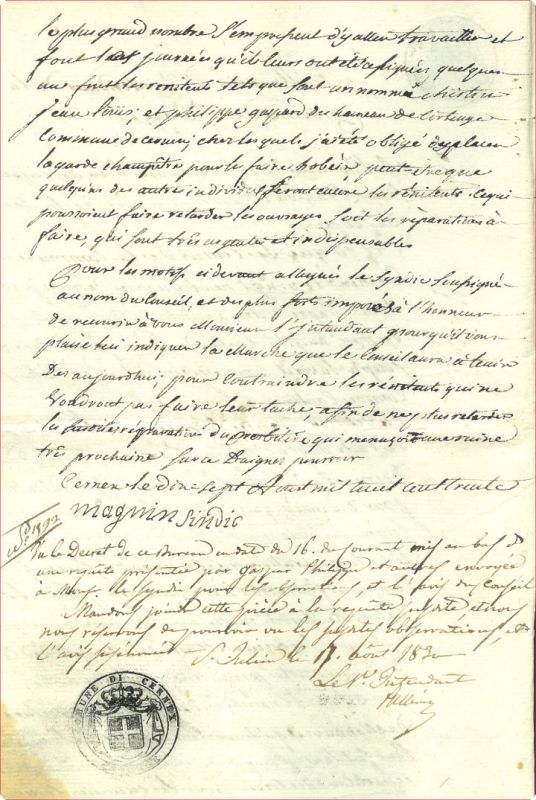 le plus grand nombre s'empressent d'y aller travailler et
font les journées qu'ils leurs ont été assignées quelques
uns font les rénitents tels que sont un nommé
jean Louis, et philippe gaspard du hameau de
Commune de cernex, chez lesquels j'ai été obligé d'y placer
la garde champêtre pour le faire hobéir peut etre que
quelqu'uns des autres individus seront encore les rénitents ce qui
pourroient faire retarder les ouvrages soit les reparations à
faire qui sont très urgentes et indispensables
Pour les motifs cidevant allegués le Syndic soussigné
au nom du Conseil, et des plus forts imposés à l'honneur
de recourir à vous Monsieur l'Intendant pour qu'il vous
plaise lui indiquer la Marche que le Conseil aura à tenir
Des aujourd'hui, pour Contraindre les rénitents qui ne
Voudront pas faire leur tache, afin de ne plus retarder
les réparations du presbitère qui menaçoit une ruine
très prochaine sur ce Daignez pourvoir
Cernex le dix-sept Aout mil huit cent trente
Magnin Sindic
Vu le Décret de ce Bureau en date du 16. du courant mis au bas d
une requête présentée par Gaspar Philippe et autres envoyée
à Monsr. le Syndic pour les observations, et l'avis du Conseil
Mandons joindre cette pièce à la requête
nous réservons de pourvoir vu les observations et
l'avis
St. Julien le 17. août 1830
Le Vce Intendant
COMUNE DI CERNEX